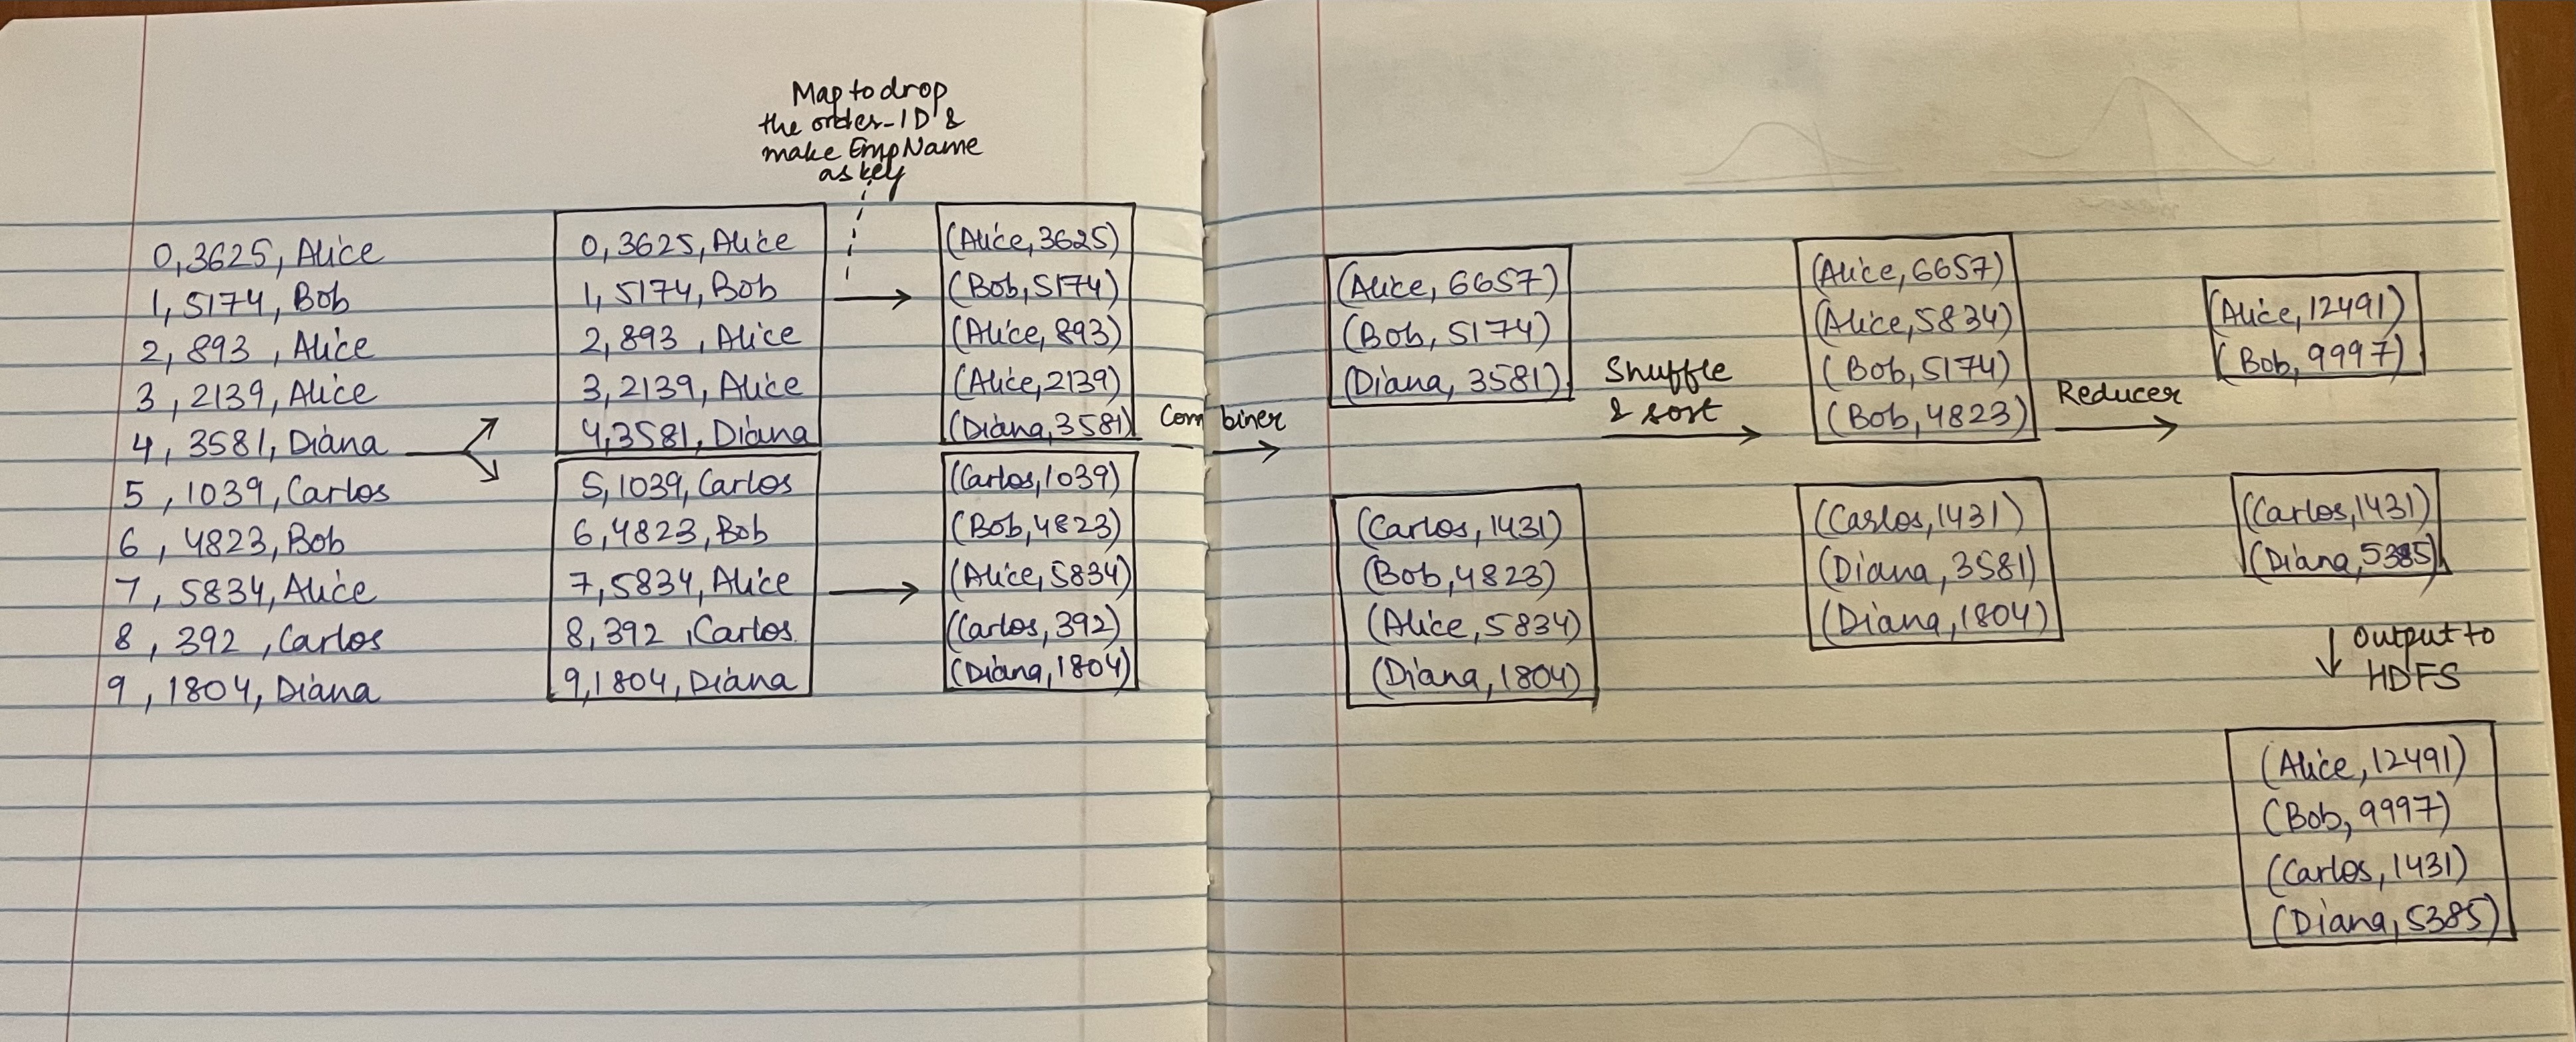 Map to drop
the order-ID &
make EmpName
as key
0,3625, Alice
1,5174, Bob
2,893 , Alice
3,2139, Alice
4,3581, Diana
5,1039, Carlos
6,4823, Bob
7,5834, Alice
8,392 ,Carlos
9,1804, Diana
0,3625, Alice
1,5174, Bob
2,893 , Alice
3,2139, Alice
4,3581, Diana
5,1039, Carlos
6,4823, Bob
7,5834, Alice
8,392 ,Carlos
9,1804, Diana
(Alice, 3625)
(Bob, 5174)
(Alice, 893)
(Alice, 2139)
(Diana, 3581)
(Carlos, 1039)
(Bob, 4823)
(Alice, 5834)
(Carlos, 392)
(Diana, 1804)
Combiner
(Alice, 6657)
(Bob, 5174)
(Diana, 3581)
(Carlos, 1431)
(Bob, 4823)
(Alice, 5834)
(Diana, 1804)
Shuffle
& sort
(Alice, 6657)
(Alice, 5834)
(Bob, 5174)
(Bob, 4823)
(Carlos, 1431)
(Diana, 3581)
(Diana, 1804)
Reducer
(Alice, 12491)
(Bob, 9997)
(Carlos, 1431)
(Diana, 5385)
Output to
HDFS
(Alice, 12491)
(Bob, 9997)
(Carlos, 1431)
(Diana, 5385)